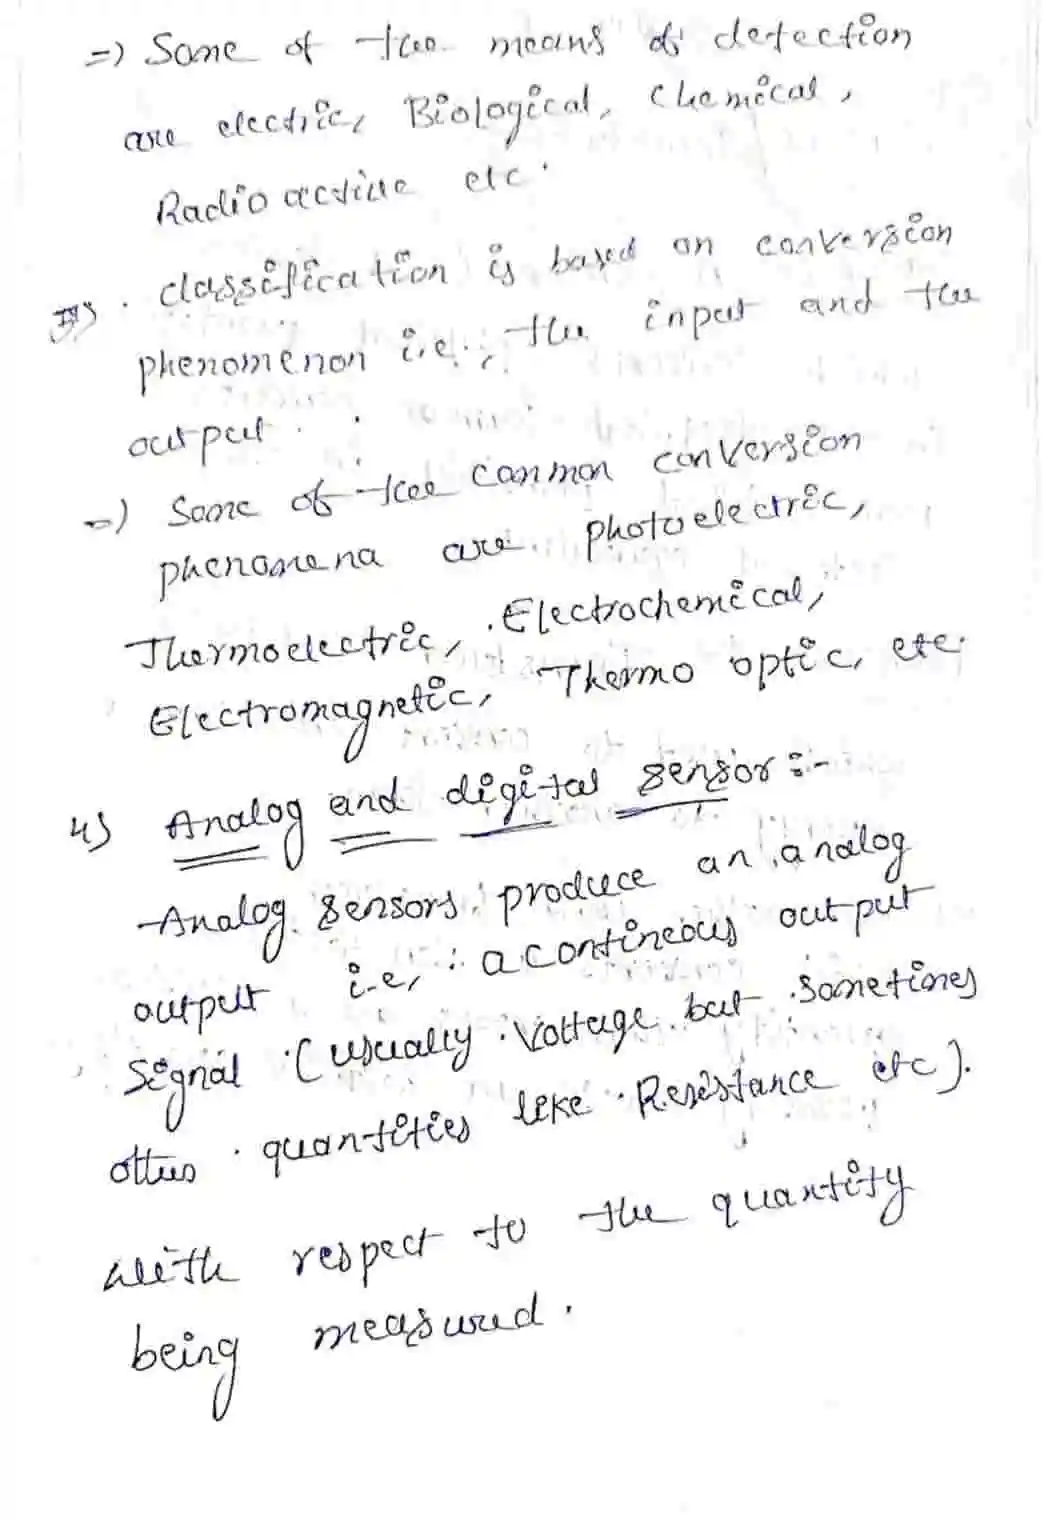 =) Some of the means of detection
are electric, Biological, Chemical,
Radio active etc.
3) . classification is based on conversion
phenomenon i.e., the input and the
output.
=) Some of the common conversion
phenomena are photoelectric,
Thermoelectric, Electrochemical,
Electromagnetic, Thermo optic, etc.
4) Analog and digital sensor :-
Analog sensors produce an analog
output i.e, a contineous output
signal (usually voltage but sometimes
other quantities like Resistance etc).
with respect to the quantity
being measured.